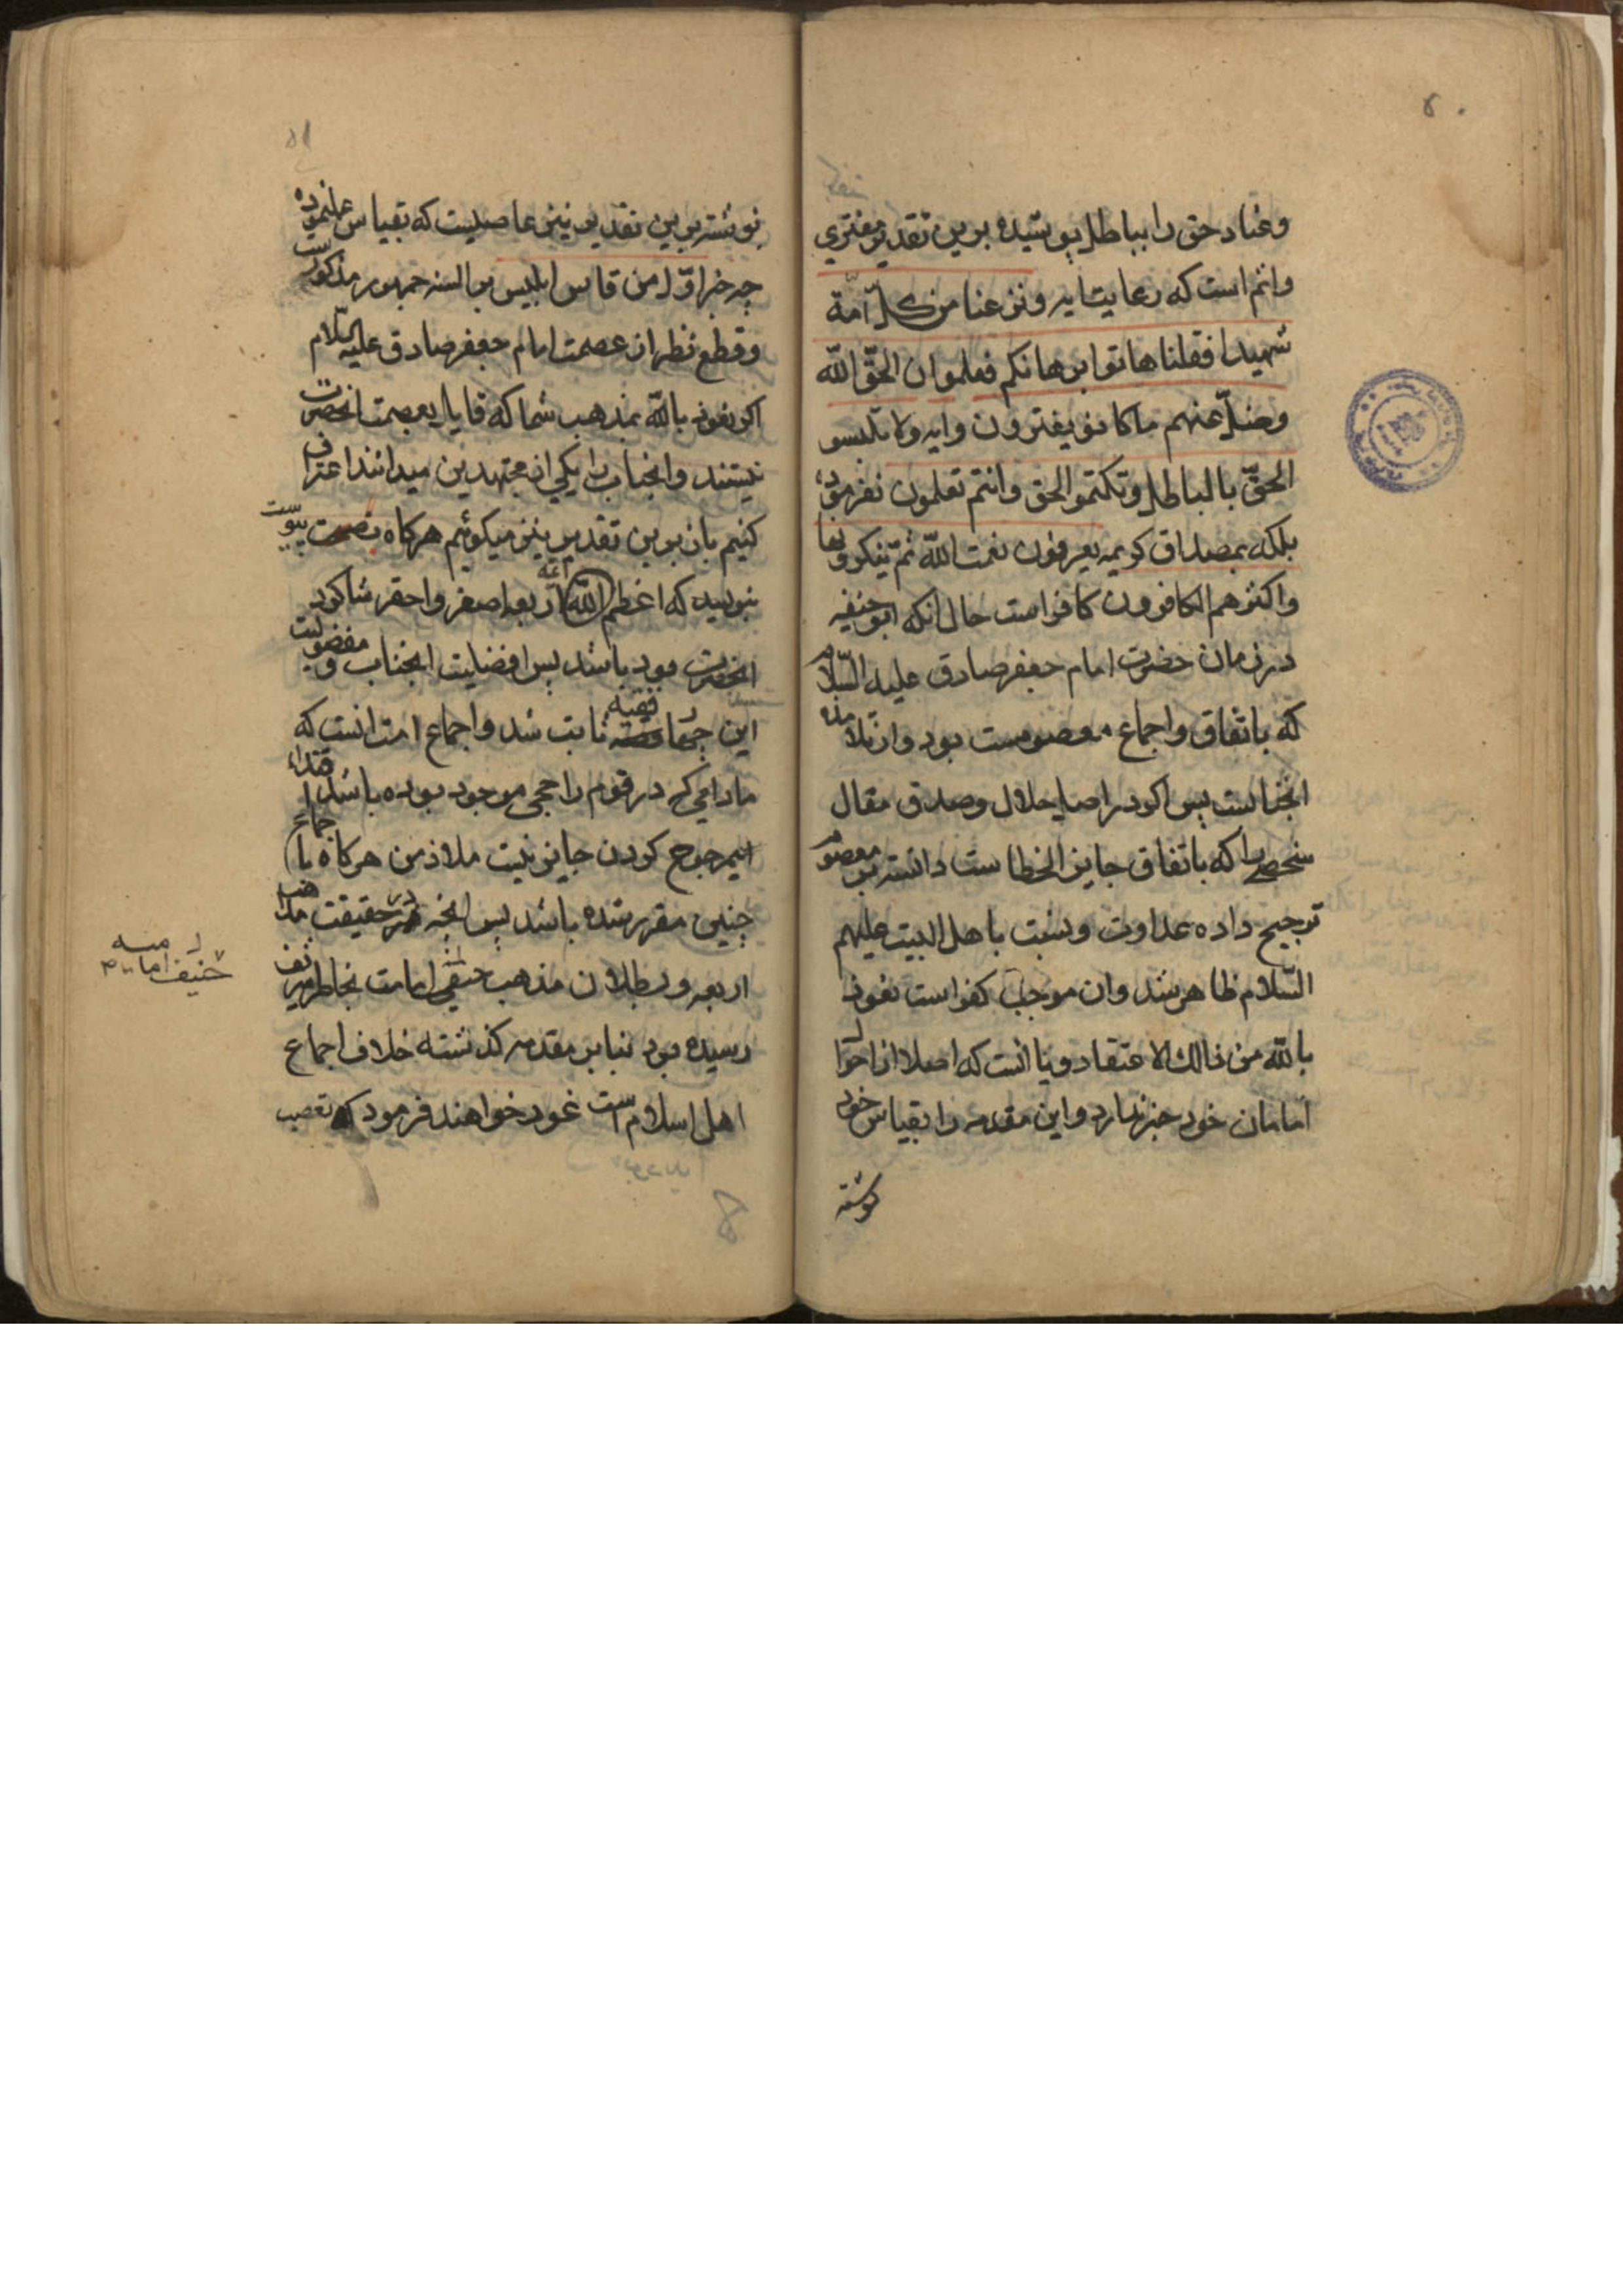 وعناد حق را بباطل پوشیده برین تقدیر مفتری
واثم است که رعایت ایه ونزعنا من کل امة
شهیدا فقلنا هاتوا برهانکم فعلموا ان الحقّ اللّه
وضلّ عنهم ما کانو یفترون وایه ولا تلبسو
الحقّ بالباطل وتکتمو الحق وانتم تعلمون نفرموده
بلکه بمصداق کریمه یعرفون نعمت اللّه ثمّ ینکرونها
واکثرهم الکافرون کافر است حال انکه ابو حنیفه
در زمان حضرت امام جعفر صادق علیه السّلام
که باتفاق واجماع معصومست بود واز تلامذه
انجنابست پس اکو در اصل حلال وصدق مقال
شخصی را که باتفاق جایز الخطاست دانسته بر معصوم
ترجیح داده عداوت ونسبت باهل البیت علیهم
السّلام ظاهر شد وان موجب کفر است نعوذ
باللّه من ذالك الاعتقاد ویا انست که اصلا از احوال
امامان خود خبر ندارد واین مقدمه را بقیاس خود
نوشته
۵۱
نوشته برین تقدیر نیز عاصیست که بقیاس عمل نموده
چه خبر اوّل من قاس ابلیس بر السنه جمهور مذکور است
وقطع نظر از عصمت امام جعفر صادق علیه السّلام
اکر نعوذ باللّه بمذهب شما که قایل بعصمت انحضرت
نیستند وانجناب را یکی از مجتهدین میدانند اعتراف
کنیم بان برین تقدیر نیز میکوئیم هرکاه بصحت پیوست
بنوسید که اعظم ائمه اربعه اصغر واحقر شاکرد
انحضرت بوده باشد پس افضلیت انجناب ومفضولیت
این چهار فقیه ثابت شد واجماع امت انست که
مادامی که در قوم راجحی موجود بوده باشد اقتداء
بمرجوح کردن جایز نیست ملاذ من هرکاه باجماع
چنین مقرر شده باشد پس انچه در حقیقت مذاهب
اربعه وبطلان مذهب امامت بخاطر شریف
رسیده بود بنابر مقدمه کذشته خلاف اجماع
اهل اسلام است غور خواهند فرمود که تعصب